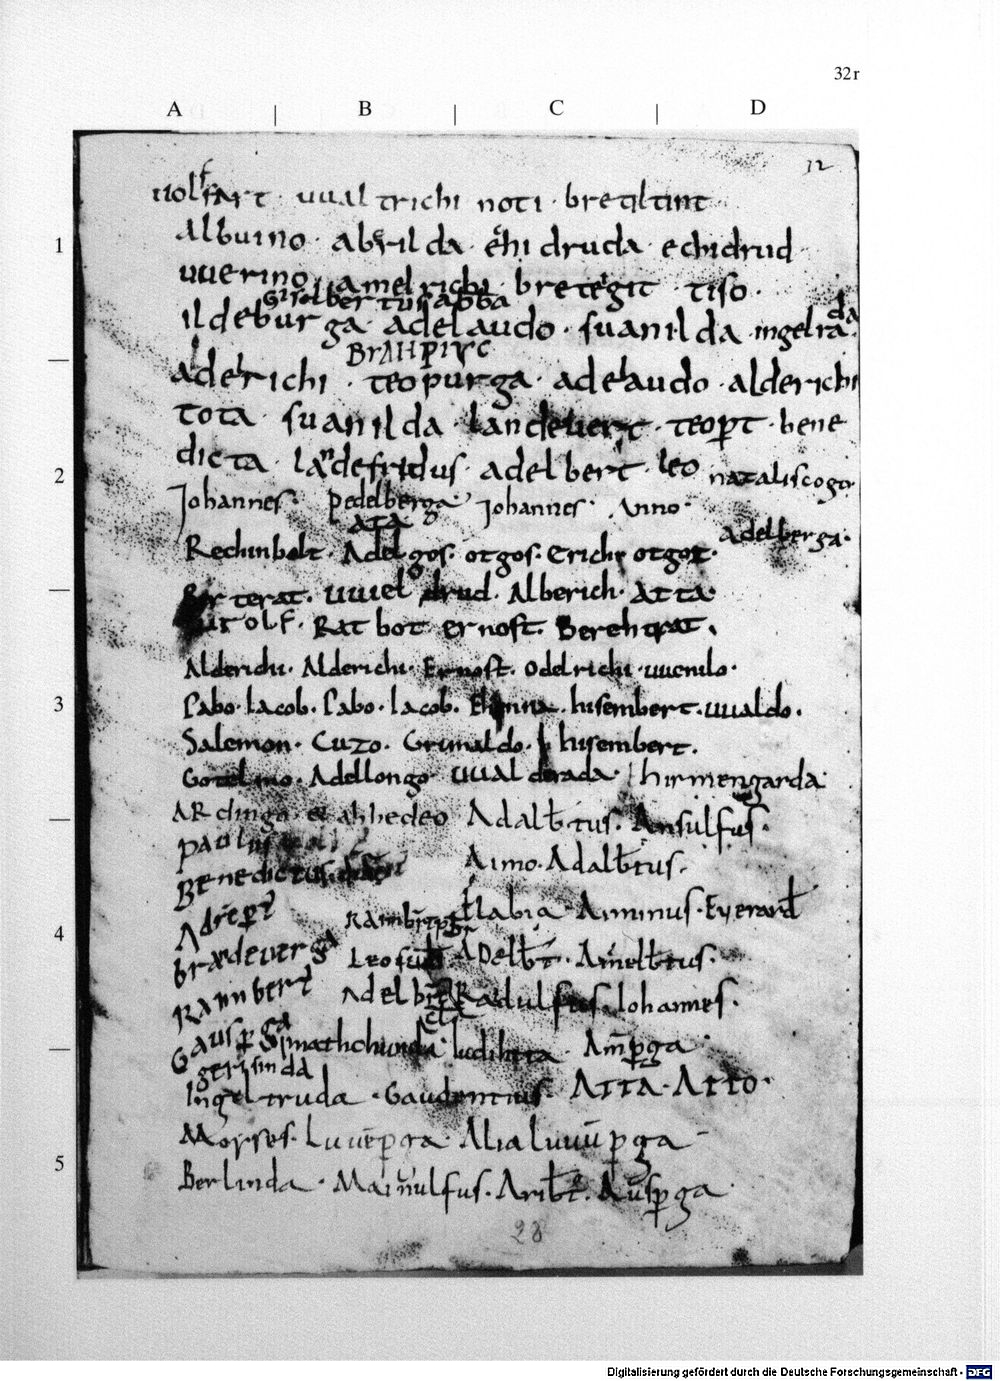 32r
A | B | C | D
32
uolfart · uualtrichi noti · bretiltint
1
albuino · abirilda · ehidruda · echidrud
uuerino · amelrichi · bretegit · tiso ·
Giselbertus abba
ildeburga adelaudo · suanilda · ingelrada ·
adelrichi · teopurga · adelaudo · alderichi
tota · suanilda · landeuert · teop̱t · bene
2
dicta · landefridus · adelbert · leo nataliscogo
Johannes · pedelberga Johannes · Anno ·
ata
Adelberga ·
Rechinbolt · Adelgos · otgos · Erichi otgot ·
terat · uuiel drud · Alberich · Atta ·
olf · Ratbot ernost · Berehtrat ·
Alderichi · Alderichi · Ernost · Odelrichi · uuenilo ·
3
Pabo · Iacob · Pabo · Iacob · husembert · uualdo ·
Salemon · Cuzo · Grimaldo · husembert ·
Gotelmo · Adellongo uualderada · hirmengarda ·
ARdingo · et ahhedeo Adalb̄tus · Ansulfus ·
paulus
Aimo · Adalb̄tus ·
Benedictus
Adrep̱t
Rambt̄
Flabia · Aminus · Eyerard
4
brandeuerga
Leo ADelb̄t · Amelb̄tus ·
Rannbert
Adelbt̄ Radulfus · Iohannes ·
Gausp̱ga
Amp̱ga
gerisinda
Ingeltruda · Gaudentius · ATTA · ATTO ·
Moyses · Liuuep̱ga · Alia Liuup̱ga
5
Berlinda · Mainulfus · Arib̄t · Ausp̱ga
28
Digitalisierung gefördert durch die Deutsche Forschungsgemeinschaft - DFG